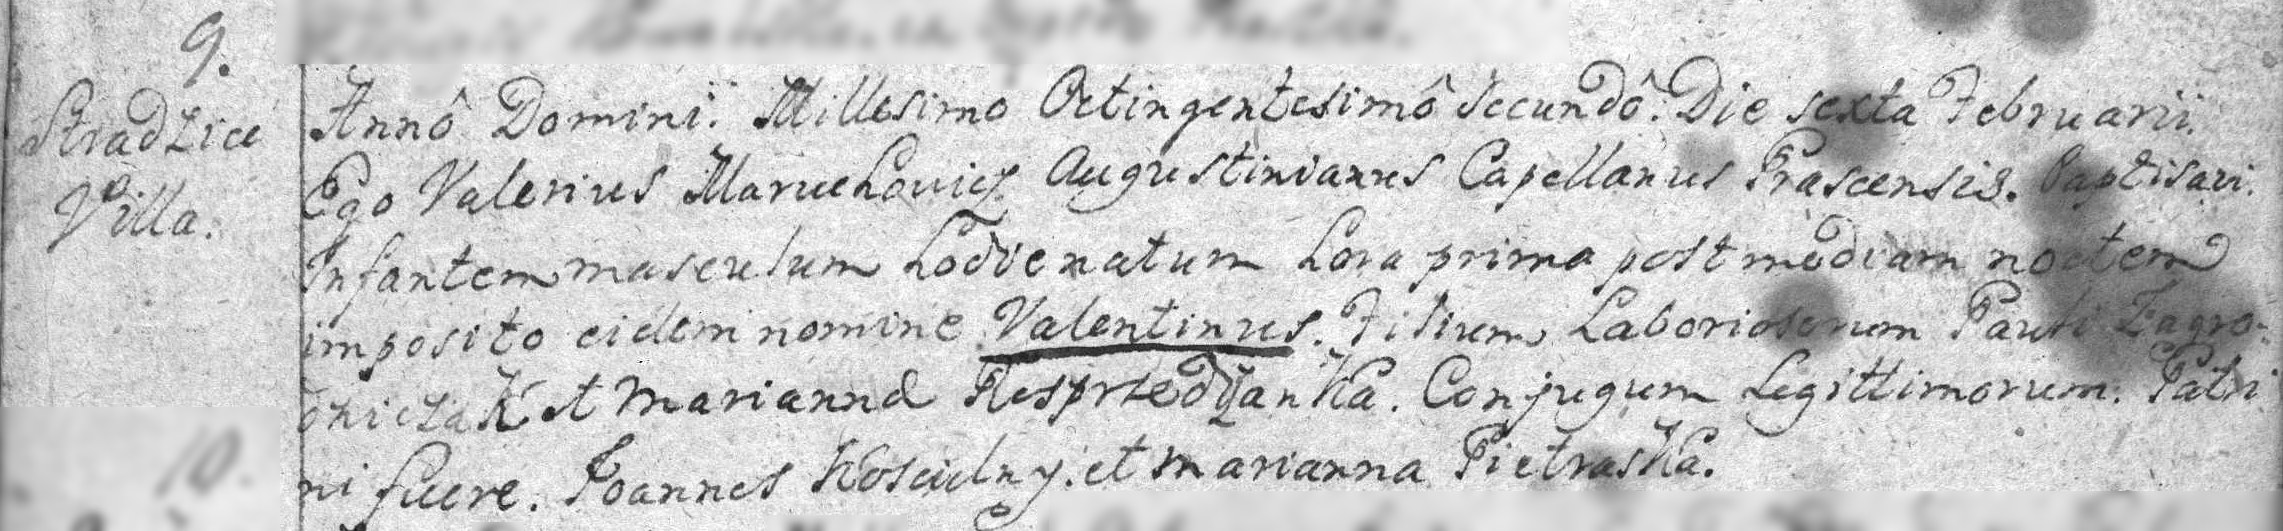 9.
Stradzice
Villa.
Annô Domini. Millesimo Octingentesimô Secundô. Die sexta Februarii.
Ego Valerius Maruchowicz Augustinianus Capellanus Prascensis. Baptisavi.
Infantem masculum hodie natum hora prima post mediam noctem
imposito eidem nomine Valentinus. Filium Laboriosorum Pauli Zagro-
dniczak et Marianna Resprzedzanka. Conjugum Legittimorum. Patri
ni fuere. Joannes Koscielny. et Marianna Pietraska.
10.